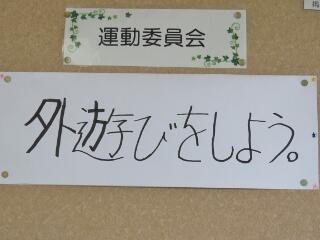 運動委員会
外遊びをしよう。